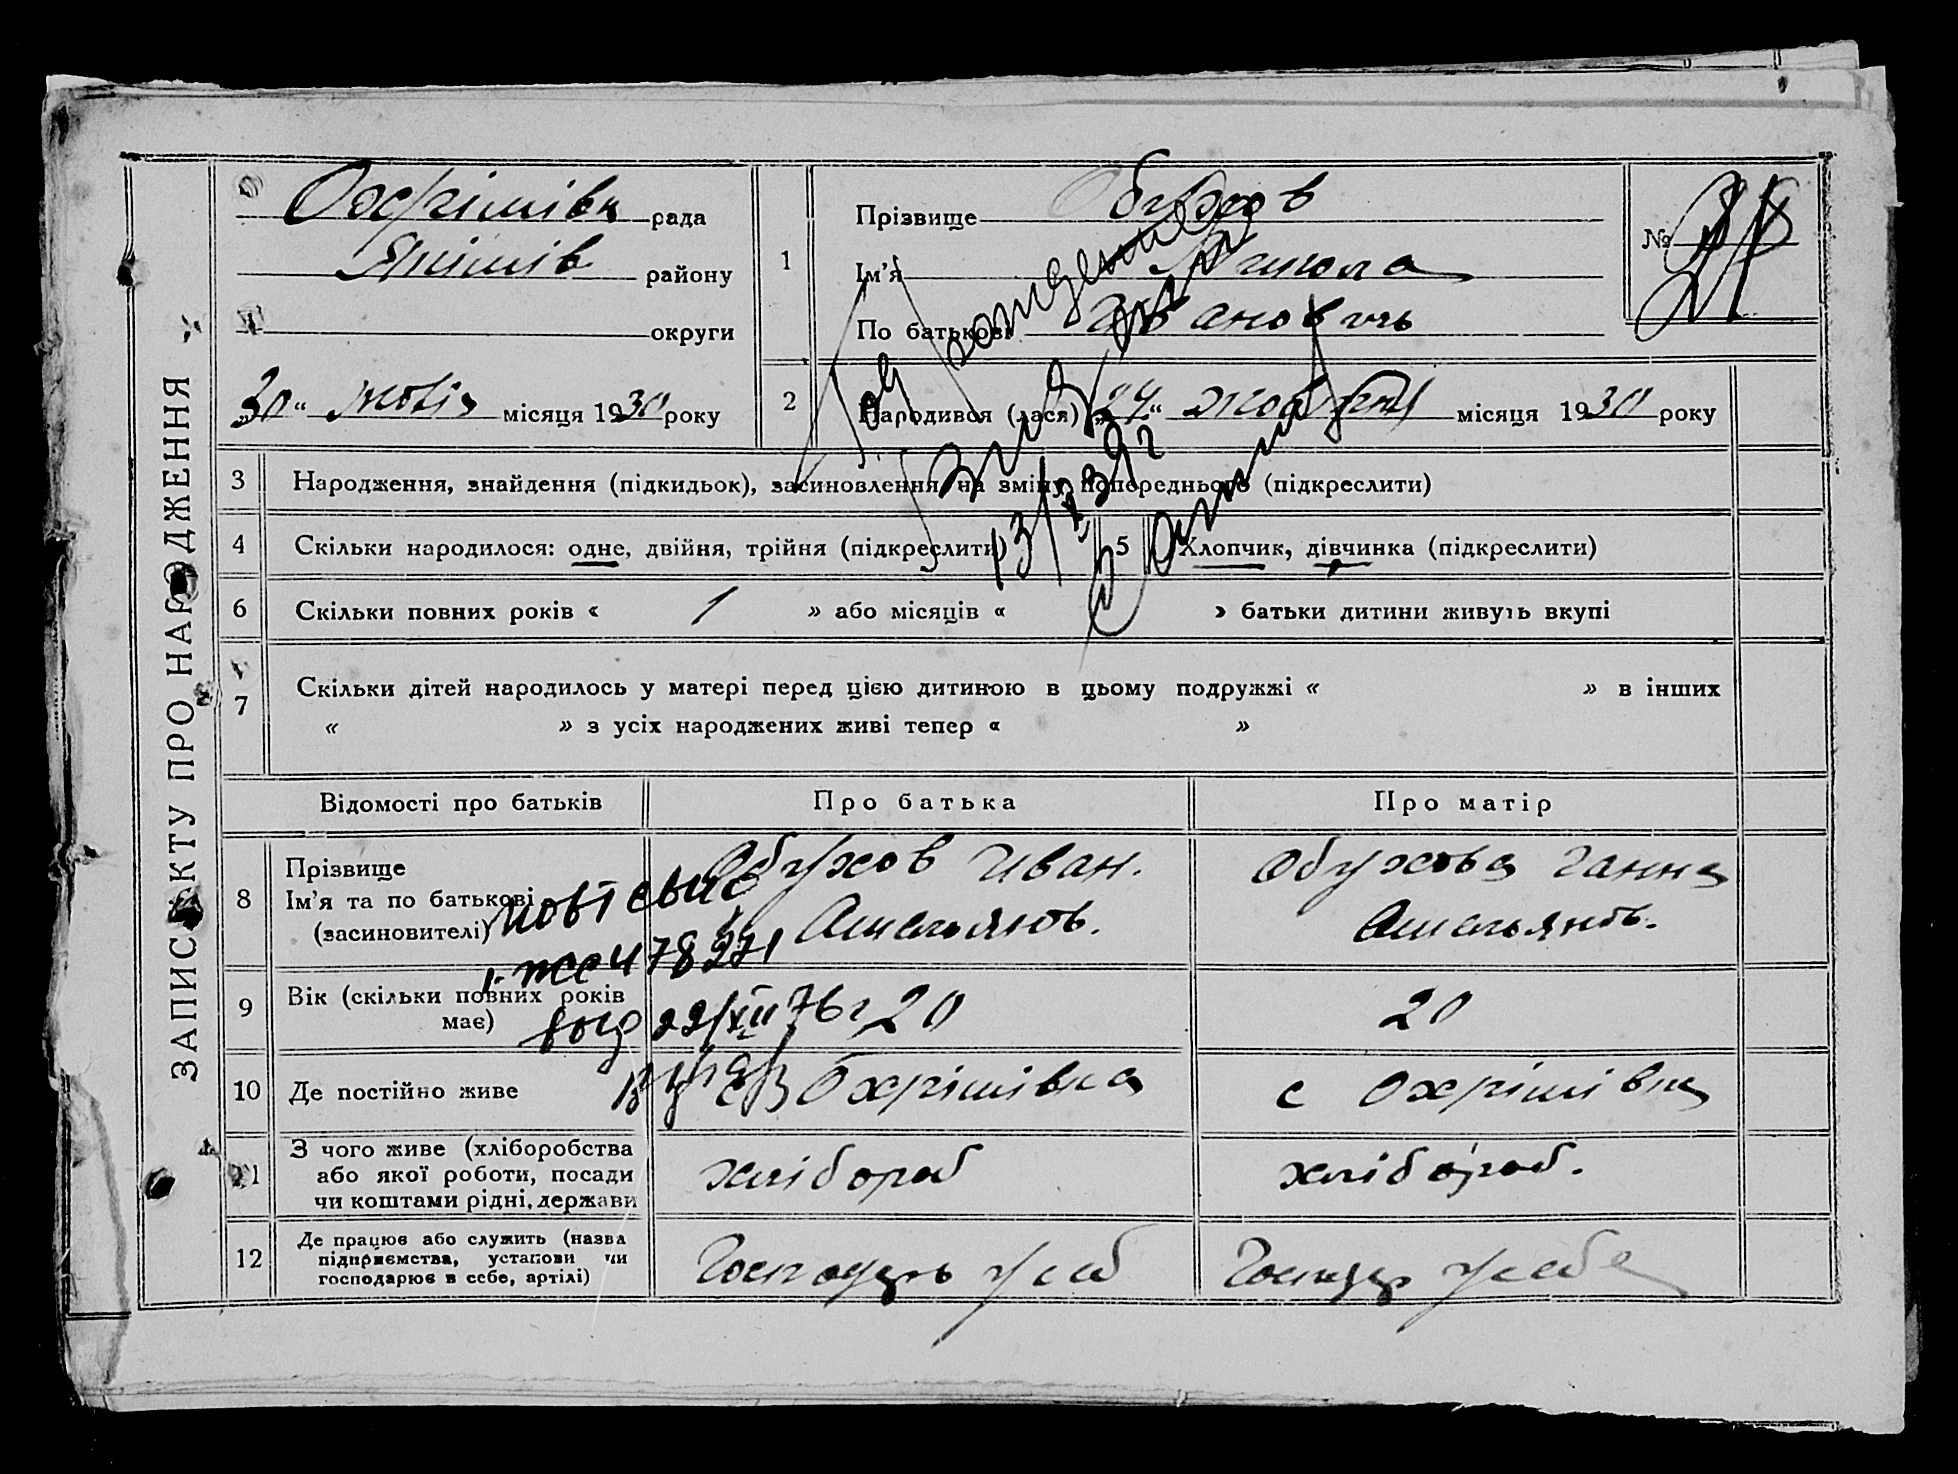 ЗАПИС АКТУ ПРО НАРОДЖЕННЯ
Охрімівк рада
району
округи
„30“ жовтн місяця 1930 року
1
Прізвище Обухов
Ім’я Микола
По батькові Ивановичь
№
2 Народився (лася) „24“ жовтня місяця 1930 року
3 Народження, знайдення (підкидьок), засиновлення на зміну попереднього (підкреслити)
4 Скільки народилося: одне, двійня, трійня (підкреслити)
5 Хлопчик, дівчинка (підкреслити)
6 Скільки повних років « 1 » або місяців « » батьки дитини живуть вкупі
7 Скільки дітей народилось у матері перед цією дитиною в цьому подружжі « » в інших
« » з усіх народжених живі тепер « »
13/X 39 г
Відомості про батьків Про батька Про матір
8 Прізвище
Ім’я та по батькові
(засиновителі)
Обухов Иван.
Омельянов.
Обухова Ганна
Омельянов.
478271
22/XII 76 г
9 Вік (скільки повних років
має)
20 20
10 Де постійно живе Охрімівка с Охрімівка
11 З чого живе (хліборобства
або якої роботи, посади
чи коштами рідні, держави
хлібороб хлібороб.
12 Де працює або служить (назва
підприємства, установи чи
господарює в себе, артілі)
Господарь у себ Господар у себе